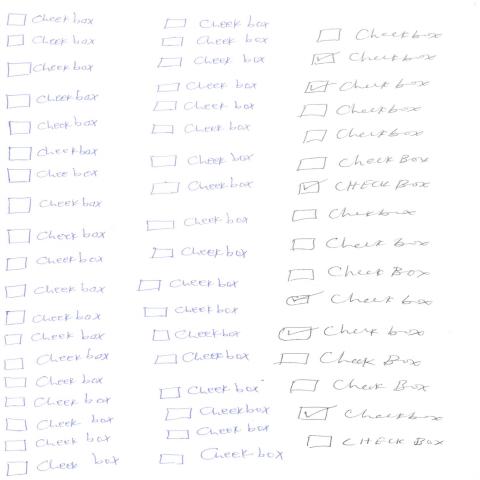 Checkbox
Checkbox
Checkbox
Checkbox
Check box
Checkbox
Checkbox
Checkbox
Check box
Check box
Check box
Check box
Check box
Check box
Check box
Check box
Check box
Check box
Check box
Check box
Check box
Check box
Check box
Check box
Check box
Check box
Check box
Check box
Check box
Check box
Check box
Checkbox
Checkbox
Check box
Checkbox
Check box
Check box
Checkbox
Checkbox
Checkbox
Checkbox
Checkbox
Check Box
CHECK BOX
Checkbox
Check box
Check Box
Checkbox
Check box
Check Box
Check Box
Checkbox
CHECK BOX